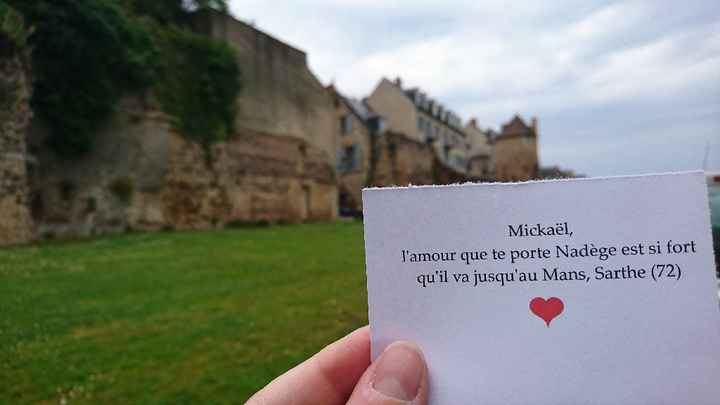 Mickaël,
l'amour que te porte Nadège est si fort
qu'il va jusqu'au Mans, Sarthe (72)